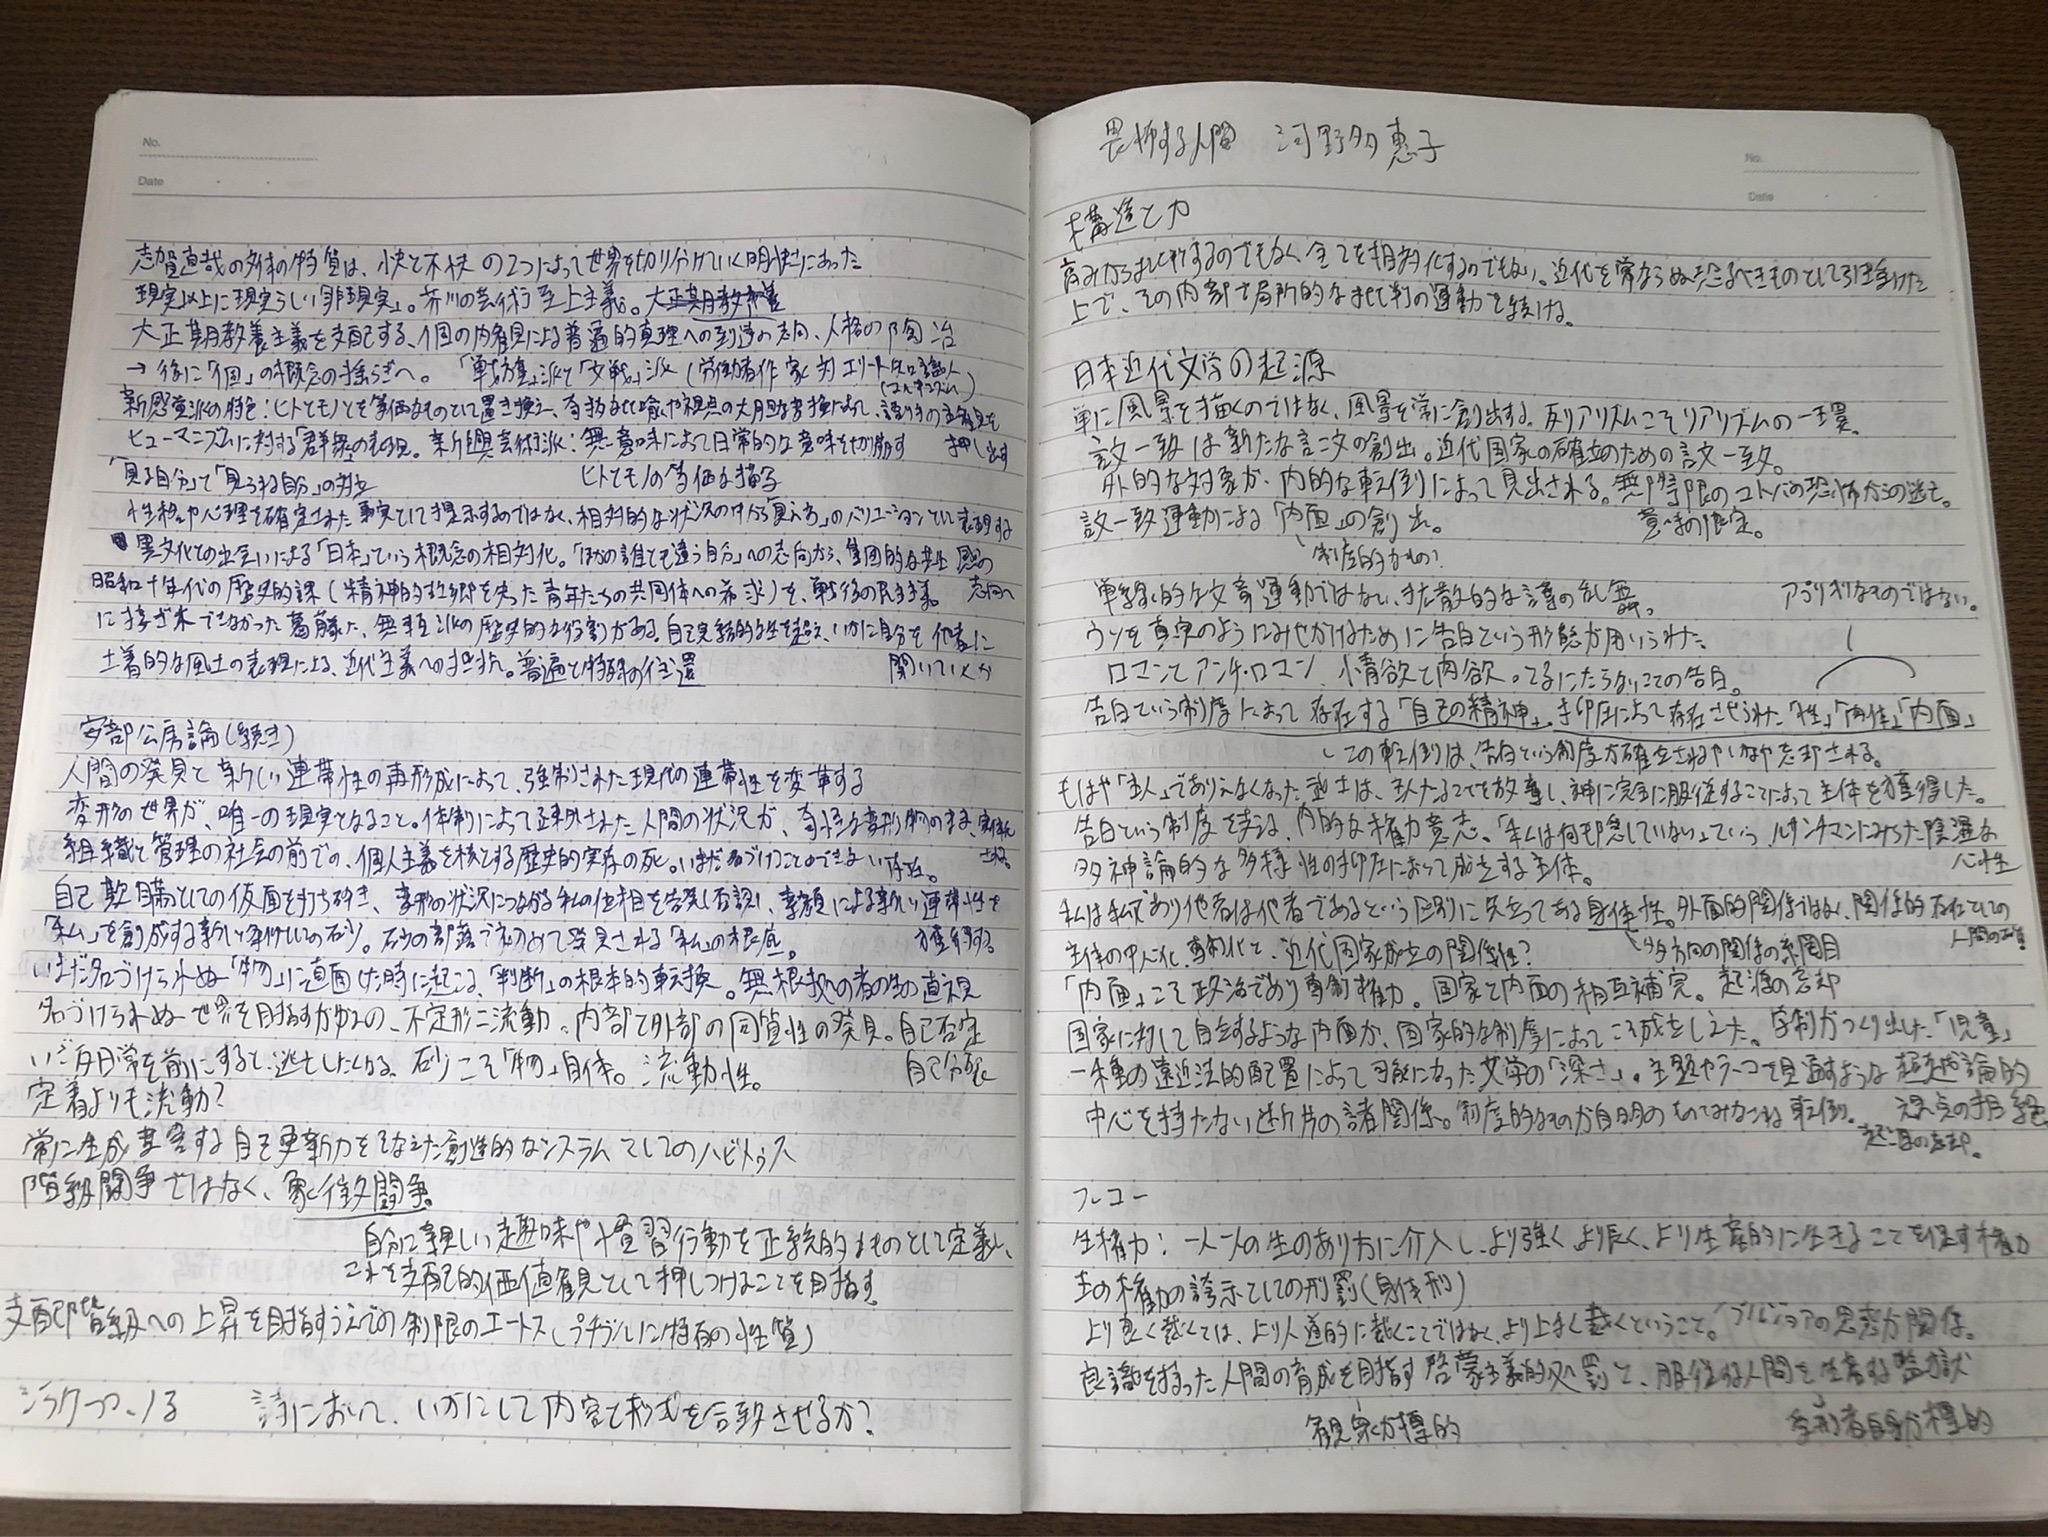 No.
Date
志賀直哉の文体の特質は、快と不快の2つによって世界を切り分けていく明快さにあった
現実以上に現実らしい「非現実」。芥川の芸術至上主義。大正期教養
大正期教養主義を支配する、個の内省による普遍的真理への到達の志向、人格の陶冶
→ 後に「個」の概念の揺らぎへ。「戦旗」派と「文戦」派(労働者作家対エリート知識人
新感覚派の特色:ヒトとモノとを等価なものとして置き換え、奇抜な比喩や視点の大胆な転換によって、語り手の主観を
押し出す
ヒューマニズムに対する「群衆」の表現。新興芸術派:無意味によって日常的な意味を切り崩す
「見る自分」と「見られる自分」の対立
ヒトとモノの等価な描写
性格や心理を確定された事実として提示するのではなく、相対的な状況の中から「見え方」のバリエーションとして表現する
異文化との出会いによる「日本」という概念の相対化。「ほかの誰とも違う自分」への志向から、集団的な共生の
志向へ
昭和十年代の歴史的課題(精神的故郷を失った青年たちの共同体への希求)を、戦後の民主主義
に接ぎ木できなかった葛藤に、無頼派の歴史的な役割がある。自己完結的な生を超え、いかに自分を他者に
開いていくか
土着的な風土の表現による、近代主義への抵抗。普遍と特殊の往還
安部公房論(続き)
人間の発見と新しい連帯性の再形成によって、強制された現代の連帯性を変革する
変形の世界が、唯一の現実となること。体制によって疎外された人間の状況が、奇怪な変形物のまま、
組織と管理の社会の前での、個人主義を核とする歴史的実存の死。いまだ名づけることのできない存在。
自己欺瞞としての仮面を打ち砕き、変形の状況につながる私の位相を告発し否認し、素顔による新しい連帯性を
獲得する。
「私」を創成する新しい条件としての砂。砂の部落で初めて発見される「私」の根底。
いまだ名づけられぬ「物」に直面した時に起こる、「判断」の根本的転換。無根拠の者の生の直視
名づけられぬ世界を目指すがゆえの、不定形に流動。内部と外部の同質性の発見。自己否定
自己分裂
いざ反日常を前にすると、逃亡したくなる。砂こそ「物」自体。流動性。
定着よりも流動?
常に生成変容する自己更新力をそなえた創造的なシステムとしてのハビトゥス
階級闘争ではなく、象徴闘争。
自分に親しい趣味や慣習行動を正統的なものとして定義し、
これを支配的価値観として押しつけることを目指す
支配階級への上昇を目指すうえでの制限のエートス(プチブルに特有の性質)
詩において、いかにして内容と形式を合致させるか?
畏怖する人間 河野多惠子
No.
Date
構造と力
高みから批判するのでもなく、全てを相対化するのでもない。近代を常ならぬ恐るべきものとして引き受けた
上で、その内部で局所的な批判の運動を続ける。
日本近代文学の起源
単に風景を描くのではなく、風景を常に創出する。反リアリズムこそリアリズムの一環。
言文一致は新たな言=文の創出。近代国家の確立のための言文一致。
外的な対象が、内的な転倒によって見出される。無際限のコトバの恐怖からの逃亡。
意味の限定。
言文一致運動による「内面」の創出。
制度的なもの?
単線的な文章運動ではない、また散文的な語の乱舞。
アプリオリなものではない。
ウソを真実のようにみせかけるために告白という形態が用いられた。
ロマンとアンチ・ロマン 情欲と肉欲 とるにたらないことの告白。
告白という制度によって存在する「自己の精神」、抑圧によって存在させられた「性」「肉体」「内面」
この転倒は、告白という制度が確立されるやいなや忘却される。
もはや「主人」でありえなくなった武士は、主人たることを放棄し、神に完全に服従することによって主体を獲得した。
告白という制度を支える、内的な権力意志。「私は何も隠していない」という、ルサンチマンにみちた陰湿な
心性
多神論的な多様性の抑圧において成立する主体。
私は私であり他者は他者であるという区別に先立ってある身体性。外面的関係ではなく、関係的存在としての
人間
多方向の関係の系・網目
主体の中心化、専制化と、近代国家成立の関係性?
「内面」こそ政治であり専制権力。国家と内面の相互補完。起源の忘却
国家に対して自立するような内面が、国家的な制度によってこそ成立しえた。学制がつくり出した「児童」
一種の遠近法的配置によって可能になった文学の「深さ」。主題やテーマを見透すような超越論的
視点の拒絶
中心を持たない断片の諸関係。制度的なものが自明のものとみなされる転倒。
起源の忘却。
フーコー
生権力:一人一人の生のあり方に介入し、より強く、より長く、より生産的に生きることを促す権力
王の権力の誇示としての刑罰(身体刑)
より良く裁くとは、より人道的に裁くことではなく、より上手く裁くということ。ブルジョアの思惑が関係。
良識を持った人間の育成を目指す啓蒙主義的処罰と、服従する人間を生産する監獄
観衆が標的
受刑者自身が標的